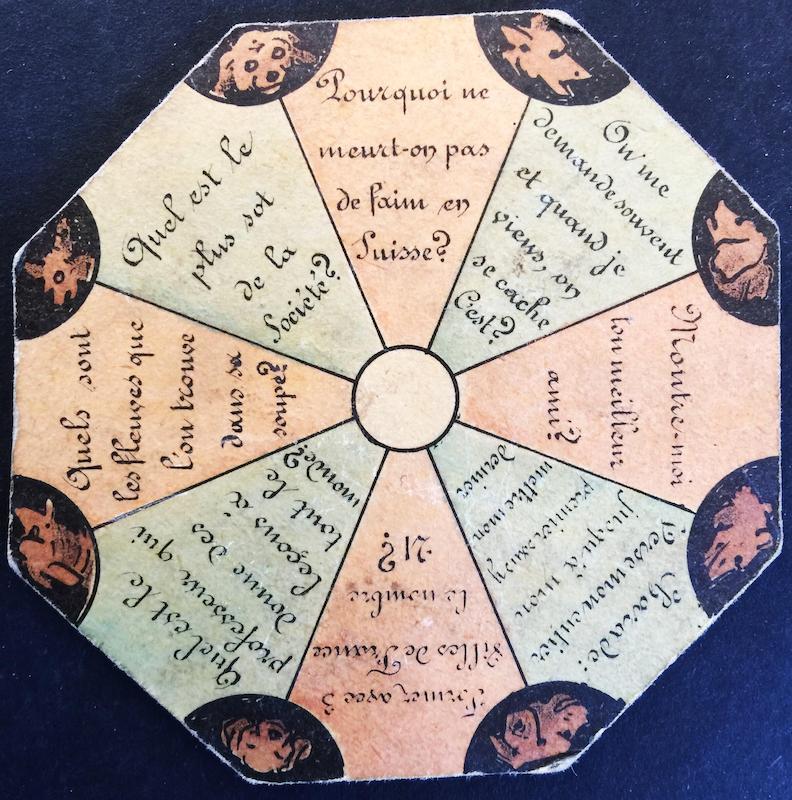 Pourquoi ne
meurt-on pas
de faim en
Suisse?
On me
demande souvent
et quand je
viens, on
se cache
C'est?
Montre-moi
ton meilleur
ami?
Charade:
Verse mon entier
jusqu'à mon
premier sans y
mettre mon
dernier
Formez avec 3
Villes de France
le nombre
21?
Quel est le
professeur qui
donne des
leçons à
tout le
monde?
Quels sont
les fleuves que
l'on trouve
dans sa
soupe?
Quel est le
plus sot
de la
Société?